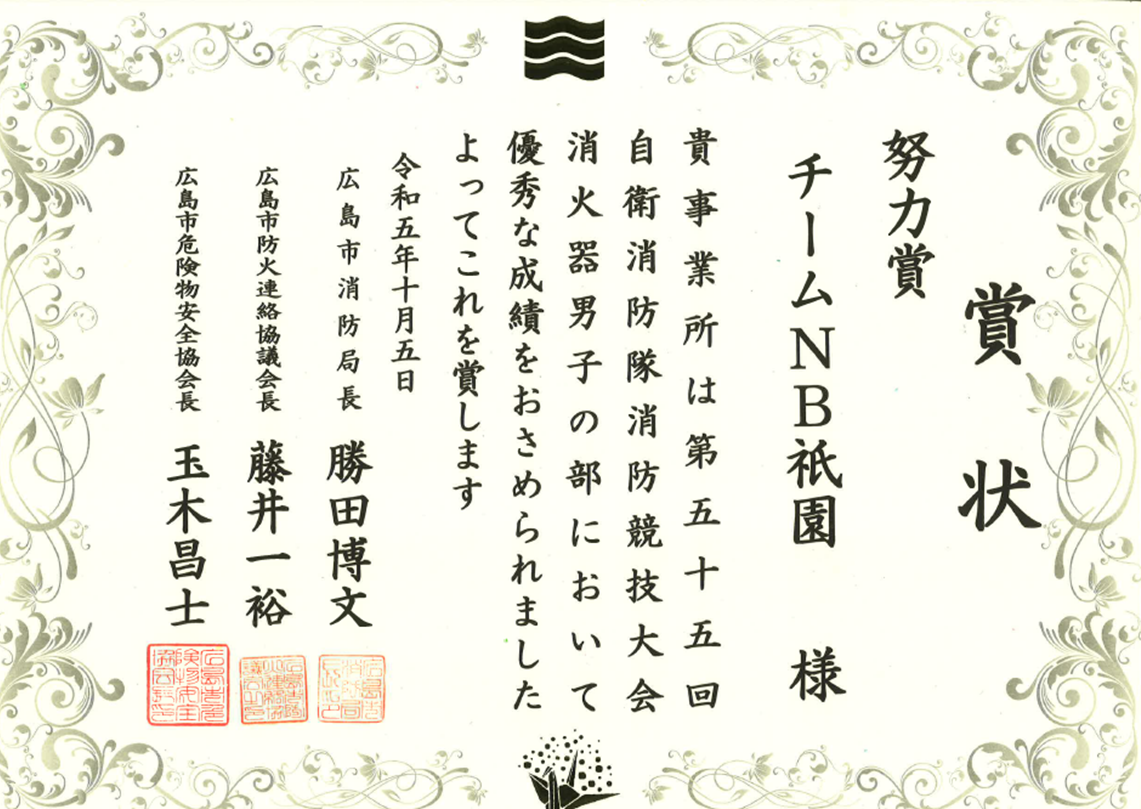 賞状
努力賞
チームNB祇園 様
貴事業所は第五十五回
自衛消防隊消防競技大会
消火器男子の部において
優秀な成績をおさめられました
よってこれを賞します
令和五年十月五日
広島市消防局長 勝田博文
広島市防火連絡協議会長 藤井一裕
広島市危険物安全協会長 玉木昌士